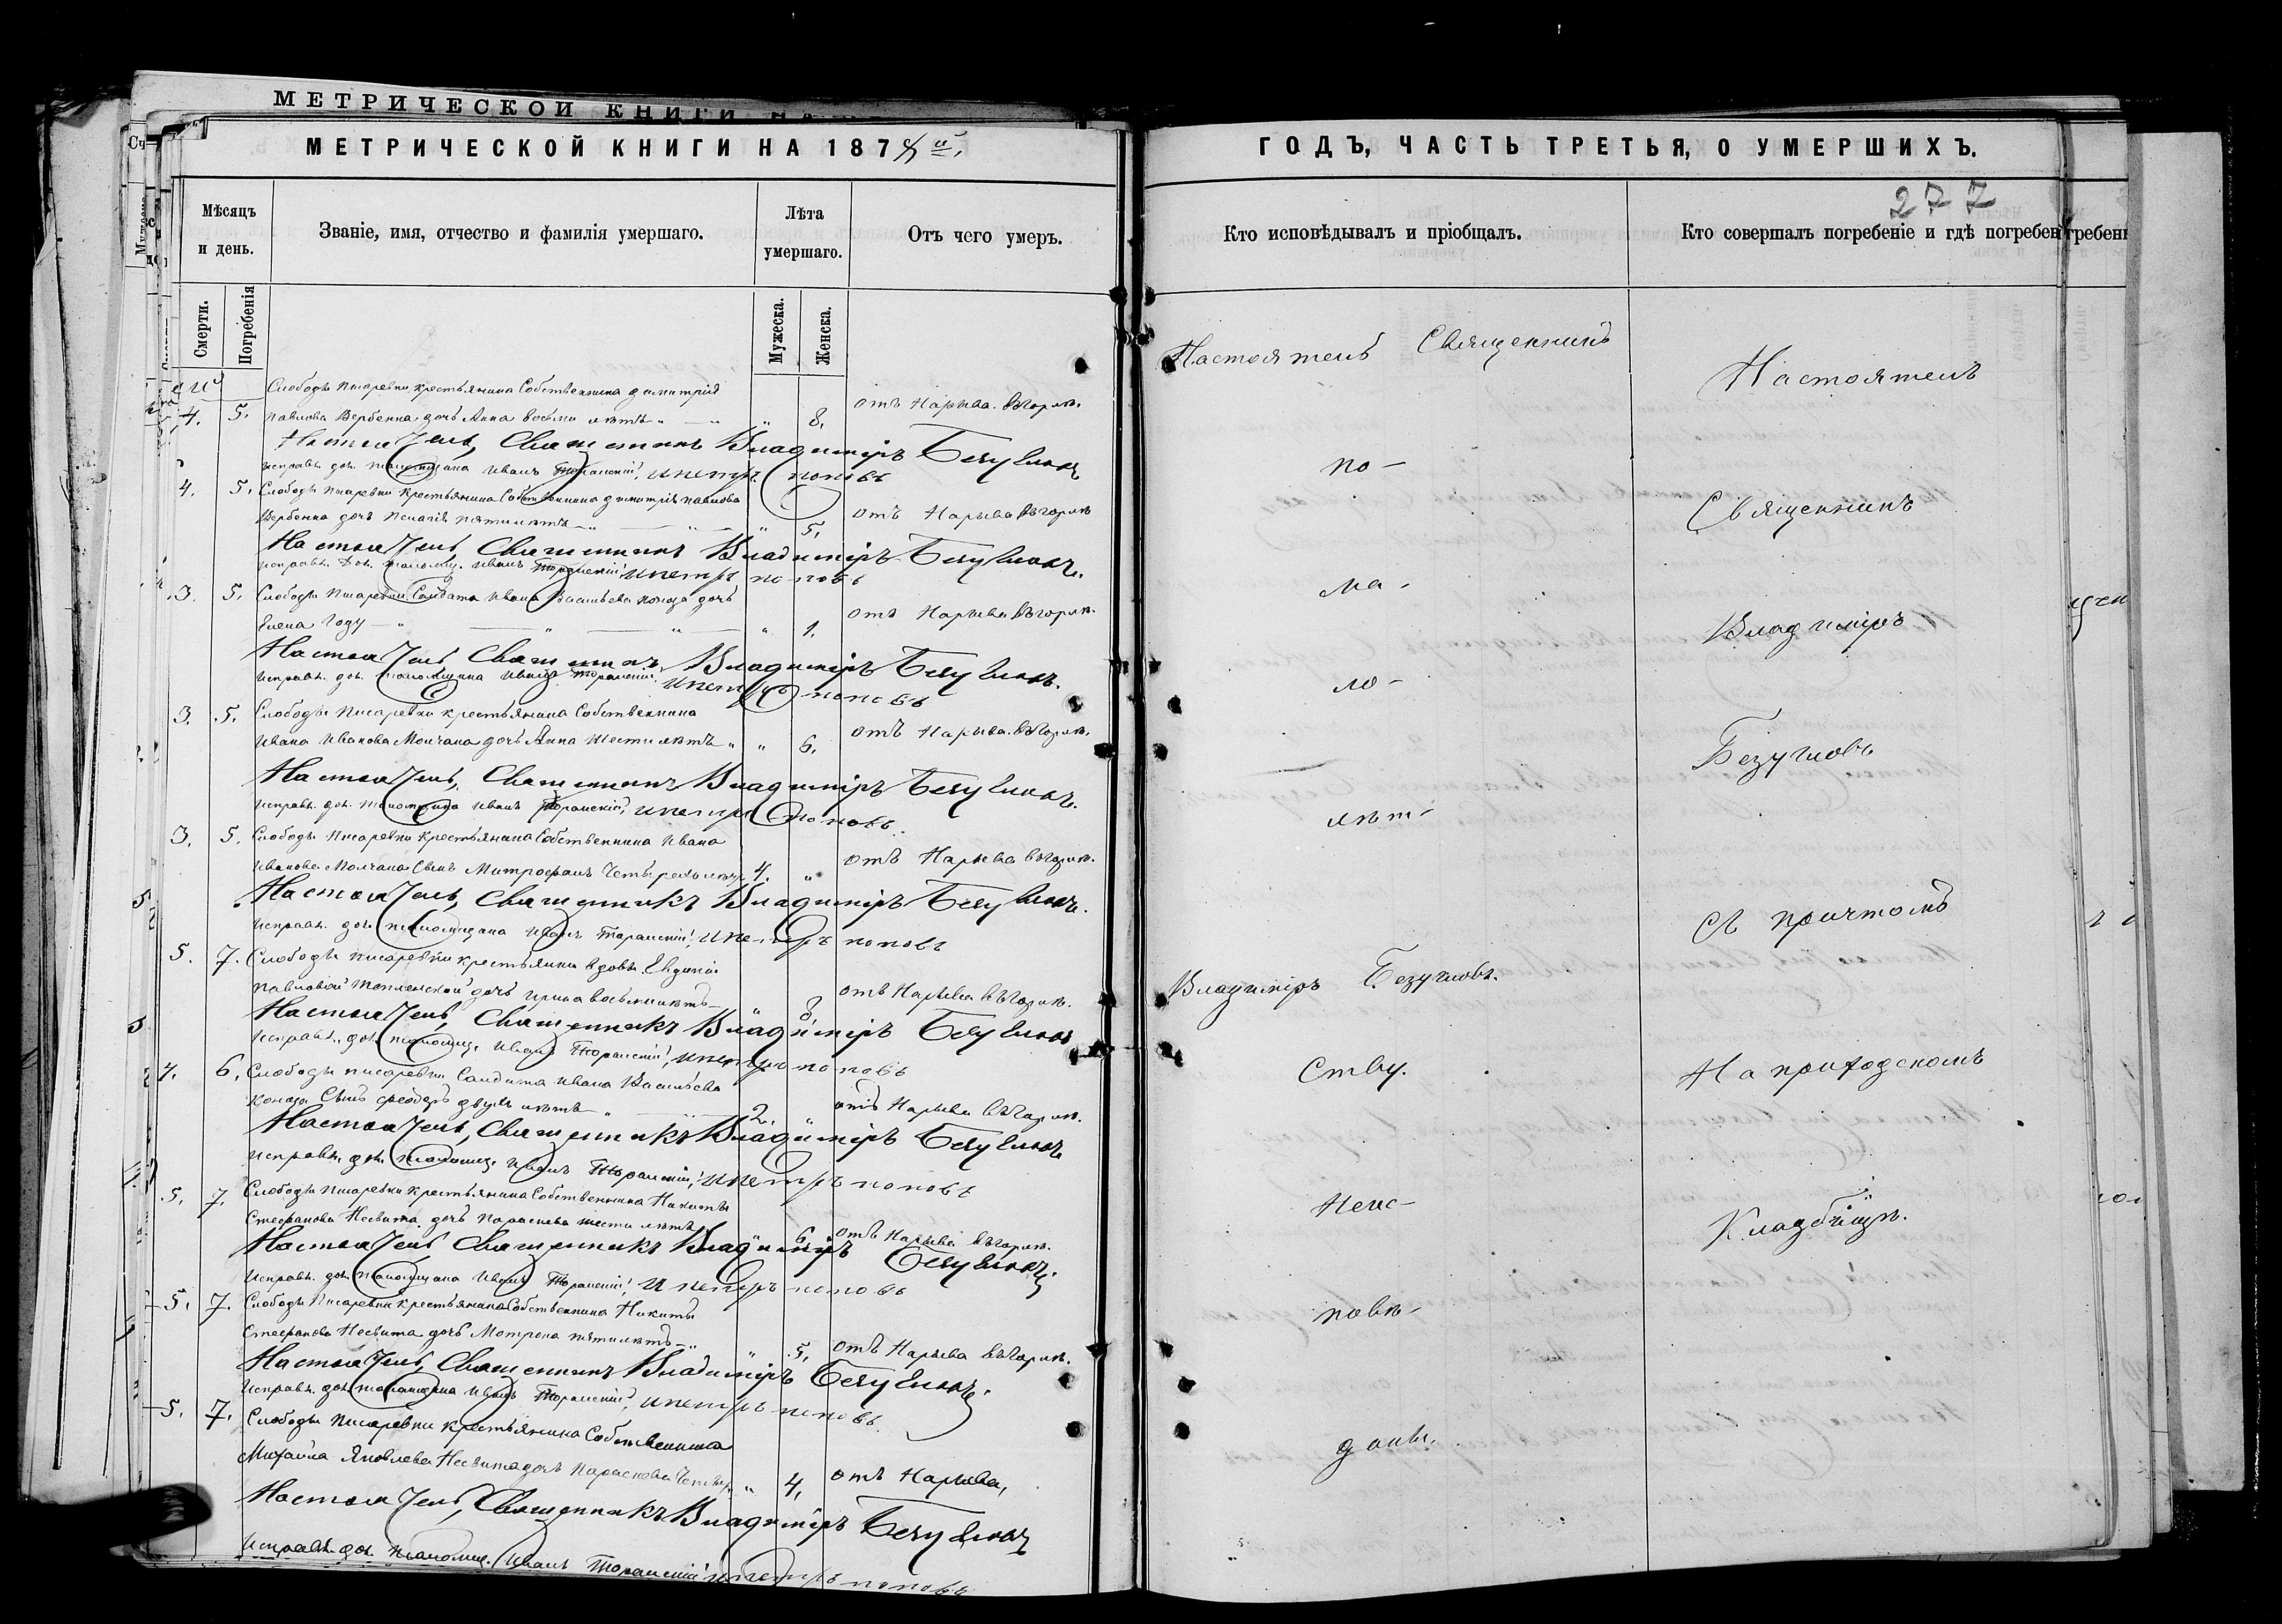 МЕТРИЧЕСКОЙ КНИГИ НА
МЕТРИЧЕСКОЙ КНИГИ НА 187
Мѣсяцъ и день.
Званіе, имя, отчество и фамилія умершаго.
Лѣта умершаго.
Отъ чего умеръ.
Смерти.
Погребенія
Мужеска.
Женска.
Слободы Писаревки крестьянина Собственника Димитрія
4. 5. Павлова Вербенка дочь Анна восьми лѣтъ 8. отъ Нарыва въ горлѣ.
Настоятель, Священникъ Владиміръ Безугловъ
Исправл. дол. Иванъ и Петръ Поповъ
4. 5. Слободы Писаревки крестьянина Собственника Димитрія Павлова
Вербенка дочь Пелагія пяти лѣтъ 5. отъ Нарыва въ горлѣ
Настоятель, Священникъ Владиміръ Безугловъ.
Исправл. дол. Иванъ и Петръ Поповъ
3. 5. Слободы Писаревки Солдата Ивана Васильева дочь
Елена Году 1. отъ Нарыва въ горлѣ.
Настоятель, Священникъ Владиміръ Безугловъ.
Исправл. дол. Иванъ и Петръ Поповъ
3. 5. Слободы Писаревки крестьянина Собственника
Ивана Иванова Молчана дочь Анна шести лѣтъ 6. отъ Нарыва въ горлѣ.
Настоятель, Священникъ Владиміръ Безугловъ.
Исправл. дол. Иванъ и Петръ Поповъ.
3. 5. Слободы Писаревки крестьянина Собственника Ивана
Иванова Молчана Сынъ Митрофанъ Четырехъ лѣтъ 4. отъ Нарыва въ горлѣ.
Настоятель, Священникъ Владиміръ Безугловъ.
Исправл. дол. Иванъ и Петръ Поповъ
5. 7. Слободы Писаревки крестьянки вдовы Евдокіи
Павловой дочь Ирина восьми лѣтъ 8 отъ Нарыва въ горлѣ.
Настоятель, Священникъ Владиміръ Безугловъ
Исправл. дол. Иванъ и Петръ Поповъ
4. 6. Слободы Писаревки Солдата Ивана Васильева
Сынъ Феодоръ двухъ лѣтъ 2. отъ Нарыва въ горлѣ.
Настоятель, Священникъ Владиміръ Безугловъ
Исправл. дол. Иванъ и Петръ Поповъ
5. 7. Слободы Писаревки крестьянина Собственника Никиты
Стефанова Несвита дочь Параскева шести лѣтъ 6. отъ Нарыва въ горлѣ.
Настоятель Священникъ Владиміръ Безугловъ.
Исправл. дол. Иванъ и Петръ Поповъ
5. 7. Слободы Писаревки крестьянина Собственника Никиты
Стефанова Несвита дочь Мотрона пяти лѣтъ 5. отъ Нарыва въ горлѣ.
Настоятель, Священникъ Владиміръ Безугловъ.
Исправл. дол. Иванъ и Петръ Поповъ
5. 7. Слободы Писаревки крестьянина Собственника
Михаила Яковлева Несвита дочь Параскева 4. отъ Нарыва,
Настоятель, Священникъ Владиміръ Безугловъ
Исправл. дол. Иванъ и Петръ Поповъ
ГОДЪ, ЧАСТЬ ТРЕТЬЯ, О УМЕРШИХЪ.
277
Кто исповѣдывалъ и пріобщалъ.
Кто совершалъ погребеніе и гдѣ погребен
Настоятель Священникъ
по-
ма-
ло-
лѣт-
Владиміръ Безугловъ.
ству.
неис-
повѣ-
даны.
Настоятель
Священникъ
Владиміръ
Безугловъ
съ причтомъ
На приходскомъ
Кладбищѣ.